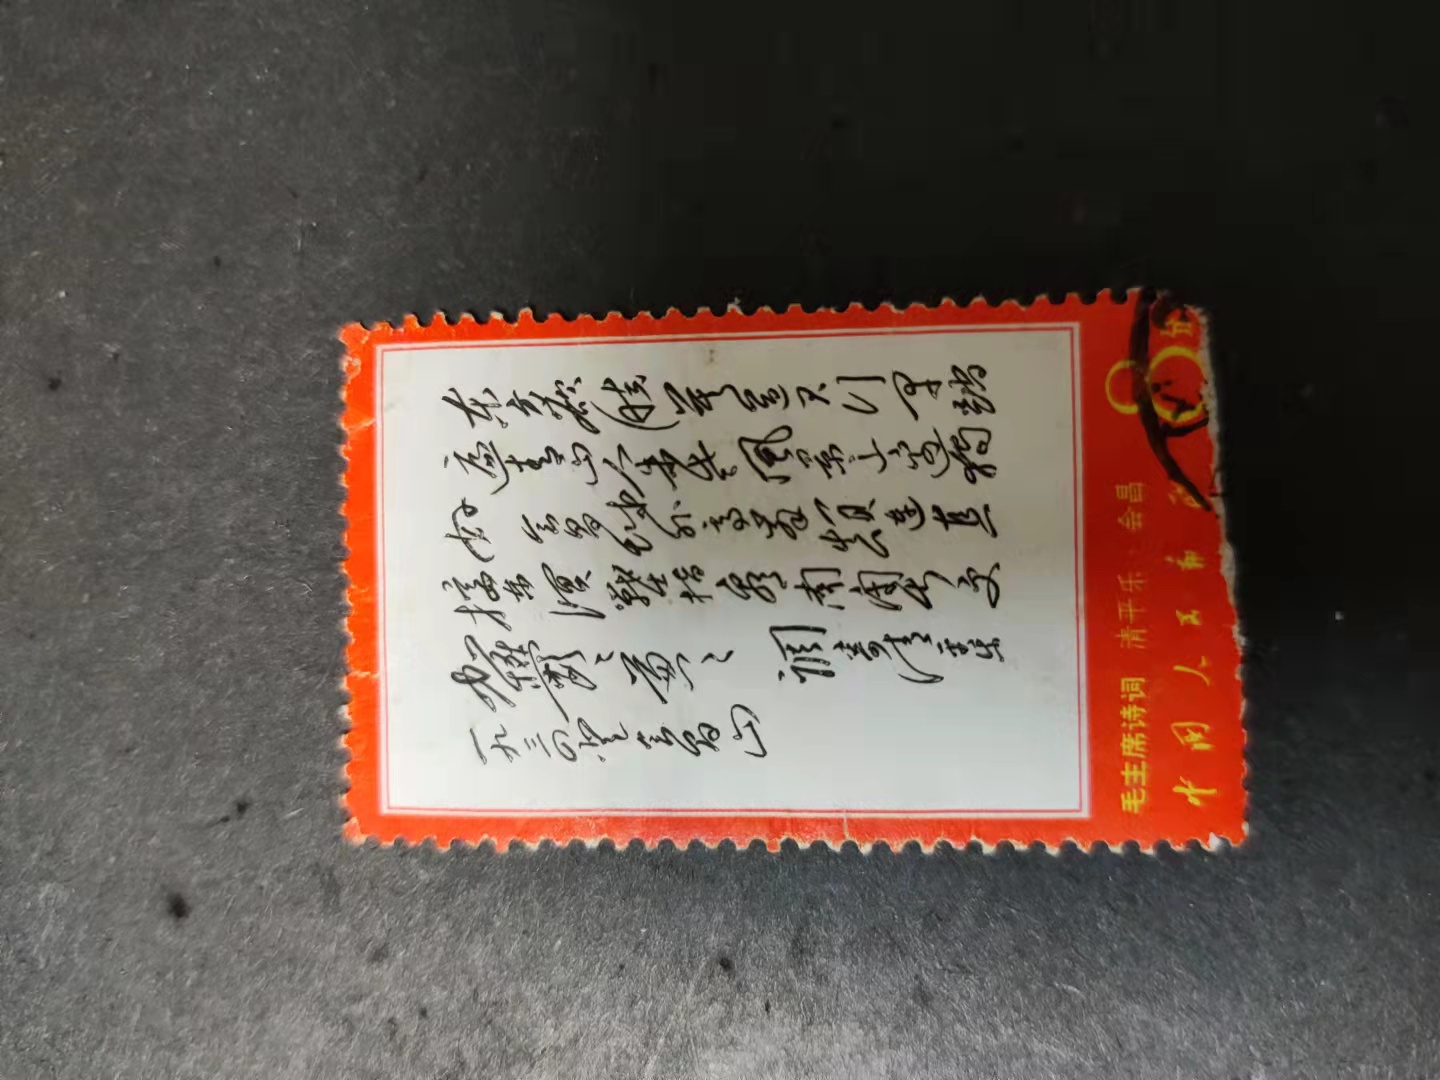 东方欲晓莫道君行早踏
遍青山人未老风景这边独
好会昌城外高峰颠连直
接东溟战士指看南粤更
加鬱〻葱〻 调寄清平乐
一九三四 登会昌山
毛主席诗词 清平乐·会昌 8分
中国人民邮